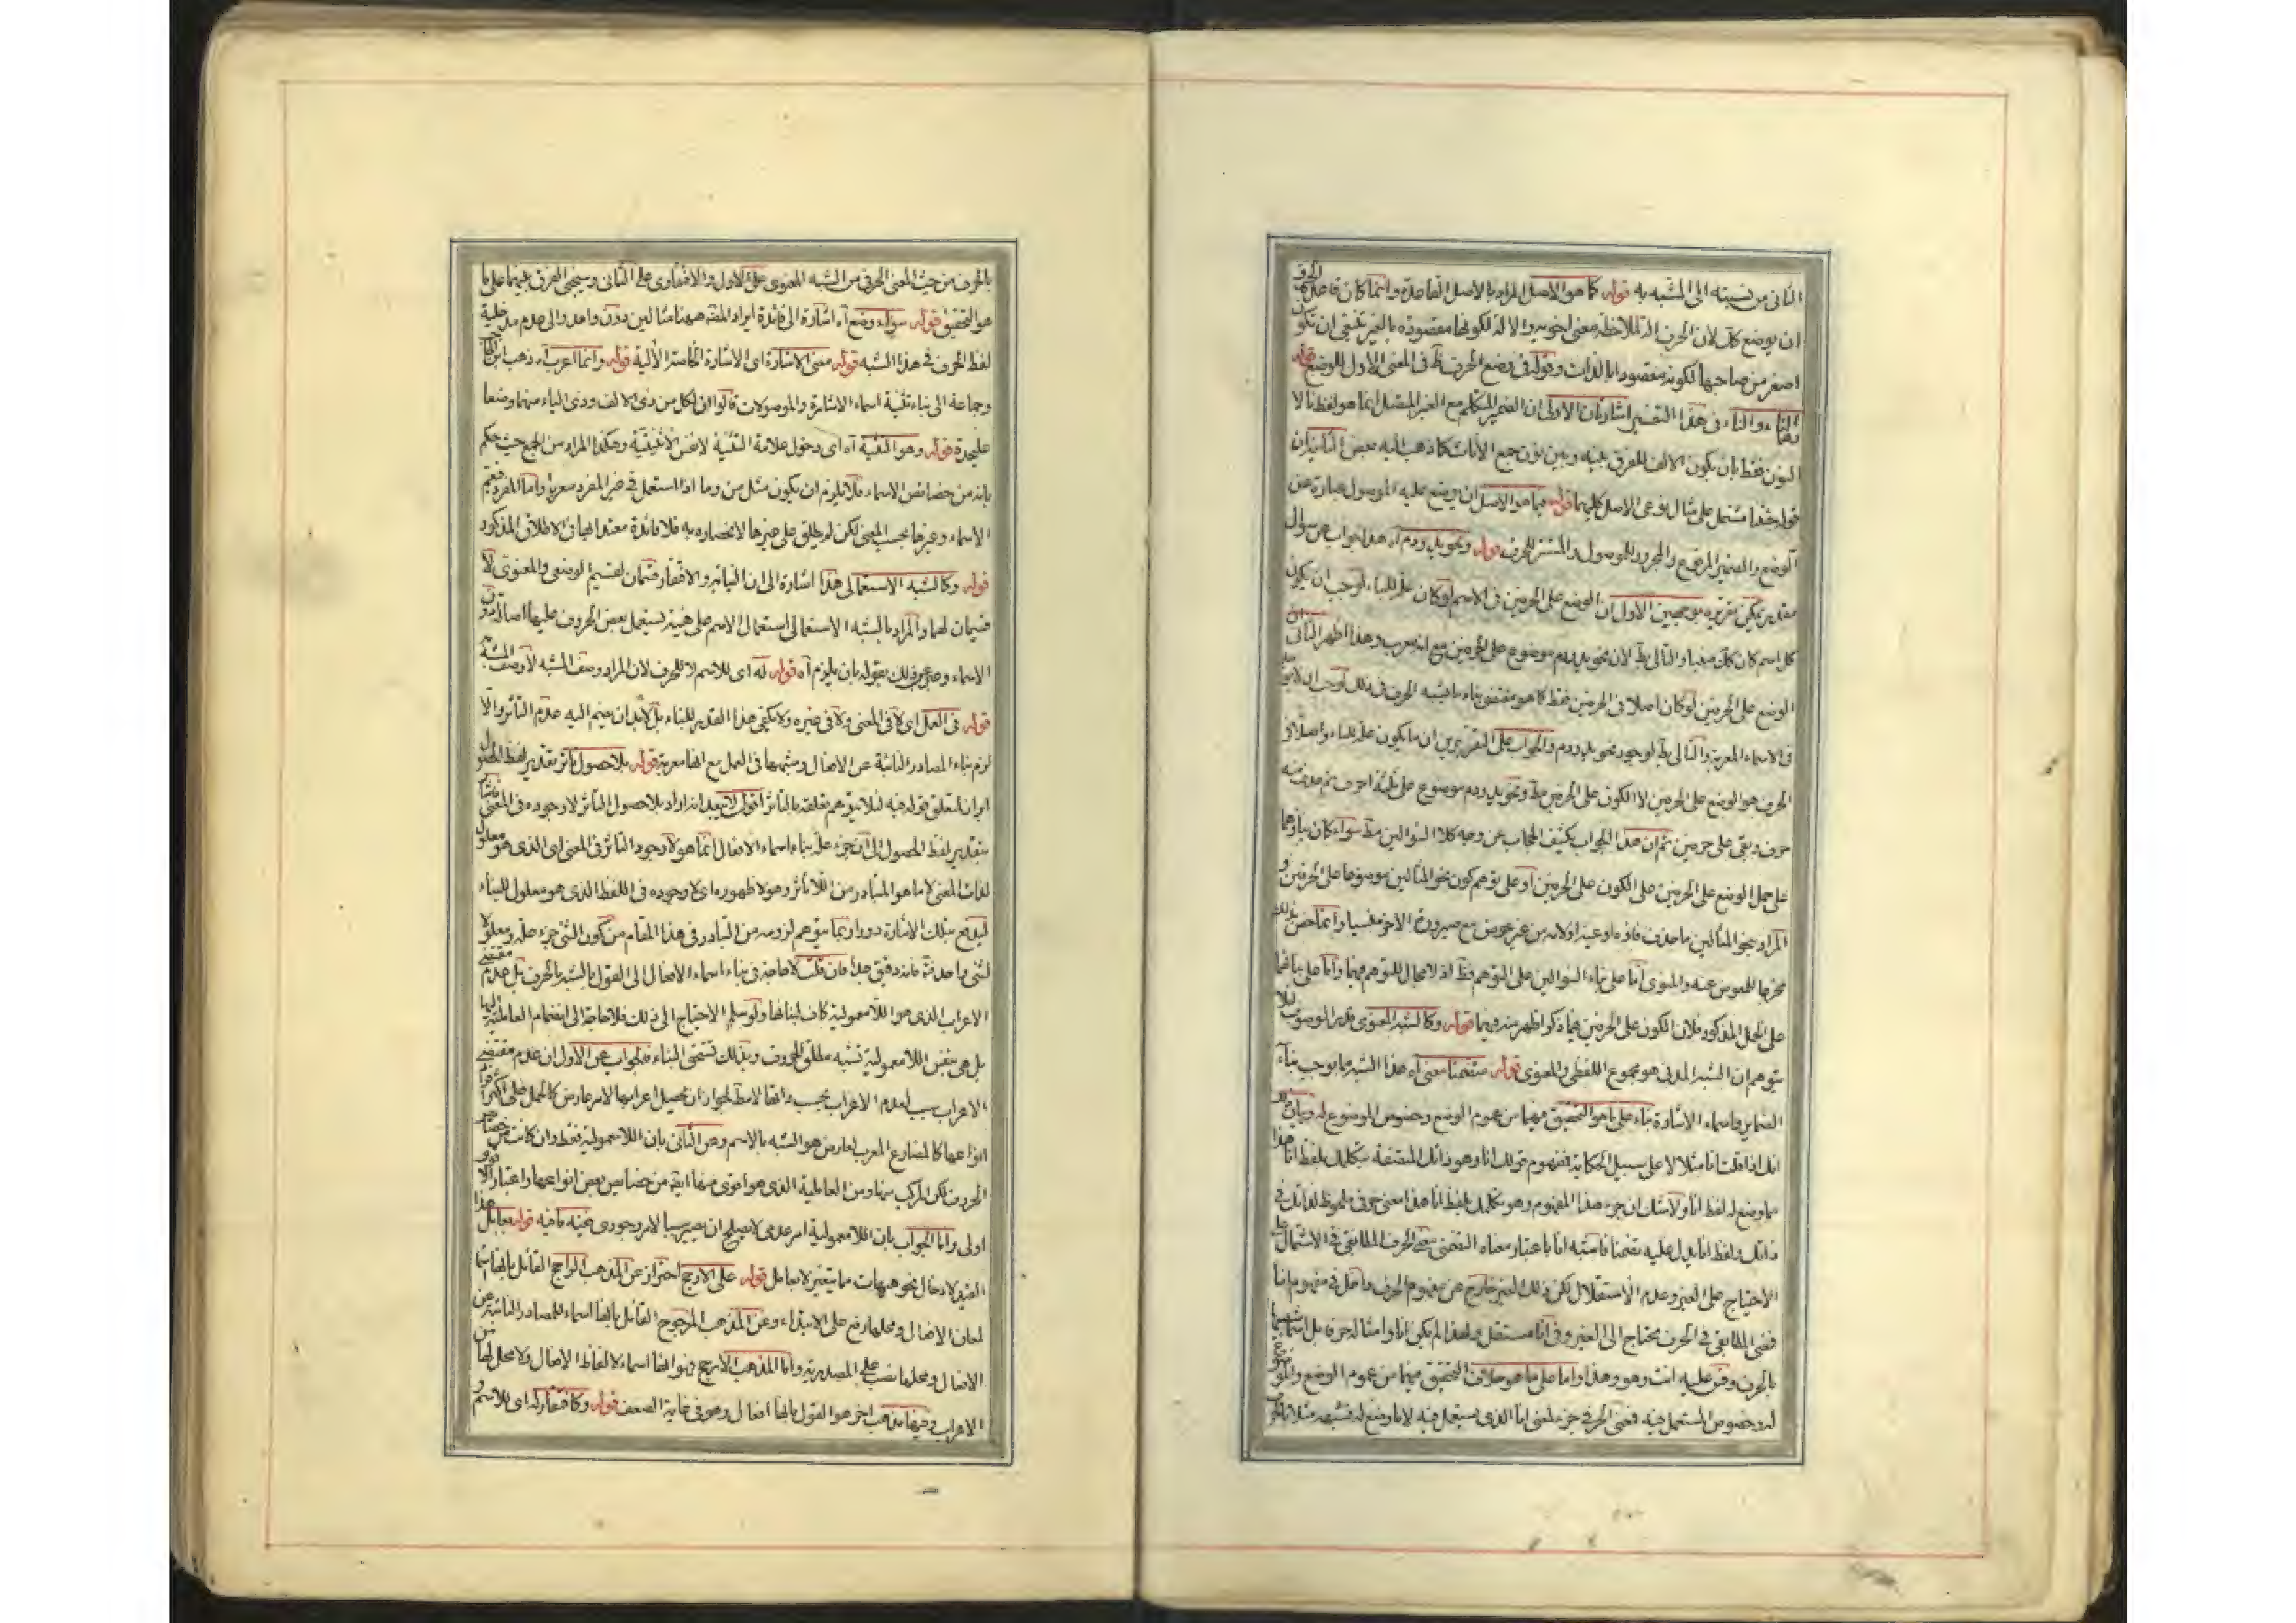 الثانی من نسبته الی المشبه به قوله کما هو الاصل المراد بالاصل القاعدة وانما کان قاعدة الحرف
ان یوضع کک لان الحرف الة لملاحظة معنی اخر والالة لکونها مقصودة بالغیر ینبغی ان تکون
اصغر من صاحبها لکونه مقصودا بالذات وقوله فی وضع الحرف ظ فی المعنی الاول للوضع قوله
التاء والنا فی هذا التفسیر اشارتان الاولی ان الضمیر المتکلم مع الغیر المتصل انما هو لفظ نا لا
النون فقط بان یکون الالف للفرق بینه وبین نون جمع الاناث کما ذهب الیه بعض
قوله جئتنا مشتمل علی مثال نوعی الاصل کلیهما قوله مما هو الاصل ان یوضع علیه الموصول عبارة عن
الوضع والضمیر المرفوع والمجرور للموصول والمستتر للحرف قوله ونحو ید ودم آه هذا جواب عن سؤال
مقدر یمکن تقریره بوجهین الاول ان الوضع علی الحرفین فی الاسم لو کان علة للبناء لوجب ان یکون
کل اسم کان کک مبنیا والتالی بط لان نحو ید ودم موضوع علی الحرفین مع انه معرب وهذا اظهر الثانی ان
الوضع علی الحرفین لو کان اصلا فی الحرفین فقط کما هو مقتضی بناء ما یشبه الحرف فی ذلک لوجب ان لا یوجد
فی الاسماء المعربة والتالی بط لوجود نحو ید ودم والجواب علی التقریرین ان ما یکون علة للبناء واصلا فی
الحرف هو الوضع علی الحرفین لا الکون علی الحرفین مط ونحو ید ودم موضوع علی ثلثة احرف ثم حذف منه
حرف وبقی علی حرفین ثم ان هذا الجواب یکشف الحجاب عن وجه کلا السؤالین مط سواء کان بناؤهما
علی حمل الوضع علی الحرفین علی الکون علی الحرفین او علی توهم کون نحو المثالین موضوعا علی الحرفین و
المراد بنحو المثالین ما حذف فاؤه او عینه او لامه من غیر عوض مع صیرورة الاخر منسیا وانما خص بذلک
مخرجا للمعوض عنه والمنوی اما علی بناء السؤالین علی التوهم فظ اذ لا مجال للتوهم فیهما واما علی بنائهما
علی الحمل المذکور فلان الکون علی الحرفین فیما ذکر اظهر منه فیهما قوله وکالشبه المعنوی قدر الموصوف لئلا
یتوهم ان الشبه المدنی هو مجموع اللفظی والمعنوی قوله متضمنا معنی آه هذا الشبه مما یوجب بناء
الضمایر واسماء الاشارة بناء علی ما هو التحقیق فیهما من عموم الوضع وخصوص الموضوع له وبیان ذلک
انک اذا قلت انا مثلا لا علی سبیل الحکایة فمفهوم قولک انا وهو ذاتک المتصفة بتکلمک بلفظ انا هذا
مما وضع له لفظ انا ولا شک ان جزء هذا المفهوم وهو تکلمک بلفظ انا هذا معنی حرفی ملحوظ لذاتک فی
ذاتک ولفظ انا یدل علیه تضمنا فاشبه انا باعتبار معناه التضمنی معنی الحرف المطابقی فی الاشتمال علی
الاحتیاج علی الغیر وعدم الاستقلال لکن ذلک الغیر خارج عن مفهوم الحرف داخل فی مفهوم انا
فمعنی المطابقی فی الحرف محتاج الی الغیر وفی انا مستقل ولهذا لم یکن انا وامثاله حرفا بل
بالحرف وقس علیه انت وهو وهذا واما علی ما هو خلاف التحقیق فیهما من عموم الوضع والموضوع
له وخصوص المستعمل فیه فمعنی الحرفی جزء لمعنی انا الذی یستعمل فیه لا ما وضع له فشبهه مثلا بالحرف
بالحرف من حیث المعنی الحرفی من الشبه المعنوی علی الاول والافتقاری علی الثانی وسیجئ الفرق بینهما علی ما
هو التحقیق قوله سواء وضع آه اشارة الی فائدة ایراد المص ههنا مثالین دون واحد والی عدم مدخلیة
لفظ الحرف فی هذا الشبه قوله معنی الاشارة ای الاشارة الخاصة الآلیة قوله وانما اعرب آه ذهب ابن الحاجب
وجماعة الی بناء تثنیة اسماء الاشارة والموصولات قالوا ان لکل من ذی الالف وذی الیاء منهما وضعا
علیحدة قوله وهو التثنیة آه ای دخول علامة التثنیة لا نفس الاثنینیة وهکذا المراد من الجمع حیث حکم
بانه من خصائص الاسماء فلا یلزم ان یکون مثل من وما اذا استعمل فی غیر المفرد معربا واما المفرد فیعم
الاسماء وغیرها بحسب المعنی لکن لم یطلق علی غیرها لانحصاره به فلا فائدة معتدا بها فی الاطلاق المذکور
قوله وکالشبه الاستعمالی هذا اشارة الی ان النیابة والافتقار قسمان لقسیم الوضعی والمعنوی لا
قسیمان لهما والمراد بالشبه الاستعمالی استعمال الاسم علی هیئة تستعمل بعض الحروف علیها اصالة دون
الاسماء وعبر عن ذلک بقوله بان یلزم آه قوله له ای للاسم لا للحرف لان المراد وصف المشبه لا وصف المشبه به
قوله فی العمل ای لا فی المعنی ولا فی غیره ولا یکفی هذا القدر للبناء بل لابد ان یضم الیه عدم التأثر والا
لزم بناء المصادر النائبة عن الافعال ومشبهها فی العمل مع انها معربة قوله بلا حصول تأثر تقدیر لفظ الحصول
ایراد لمتعلق قوله فیه لئلا یتوهم تعلقه بالتأثر اقول لا یبعد انه اراد بلا حصول التأثر لا وجوده فی المعنی
بتقدیر لفظ الحصول الی ان جزء علة بناء اسماء الافعال انما هو لا وجود التأثر فی المعنی ای الذی هو معلول
لذات المعنی لا ما هو المتبادر من اللا تأثر وهو لا ظهوره ای لا وجوده فی اللفظ الذی هو معلول للبناء
لیدفع بتلک الاشارة دورا ربما یتوهم لزومه من التبادر فی هذا المقام من کون الشئ جزء علة ومعلولا
لشئ واحد فتدبر فانه دقیق جدا فان قلت لا حاجة فی بناء اسماء الافعال الی القول بالشبه بالحرف بل عدم مقتضی
الاعراب الذی هو اللامعمولیة کاف لبنائها ولو سلم الاحتیاج الی ذلک فلا حاجة الی انضمام العاملیة الیها
بل هی بنفس اللامعمولیة تشبه مطلق الحروف وبذلک تستحق البناء فالجواب عن الاول ان عدم مقتضی
الاعراب سبب لعدم الاعراب بحسب ذاتها لا مط لجواز ان یحصل اعرابها لامر عارض کالحمل علی اکثر
انواعها کالمضارع المعرب لعارض هو الشبه بالاسم وعن الثانی بان اللامعمولیة فقط وان کانت من خصائص
الحروف لکن المرکب منها ومن العاملیة الذی هو اقوی منها ایض من خصایص بعض انواعها واعتبار الاقوی
اولی واما الجواب بان اللامعمولیة امر عدمی لا یصلح ان یصیر سببا لامر وجودی ففیه ما فیه قوله بعامل هذا
القید لادخال نحو هیهات مما یتغیر لا بعامل قوله علی الارجح احتراز عن المذهب الراجح القائل بانها اسماء
لمعان الافعال ومحلها رفع علی الابتداء وعن المذهب المرجوح القائل بانها اسماء للمصادر النائبة عن
الافعال ومحلها نصب علی المصدریة واما المذهب الارجح فهو انها اسماء لالفاظ الافعال ولا محل لها من
الاعراب وفیها مذهب اخر هو القول بانها افعال وهو فی غایة الضعف قوله وکافتقار له ای للاسم و